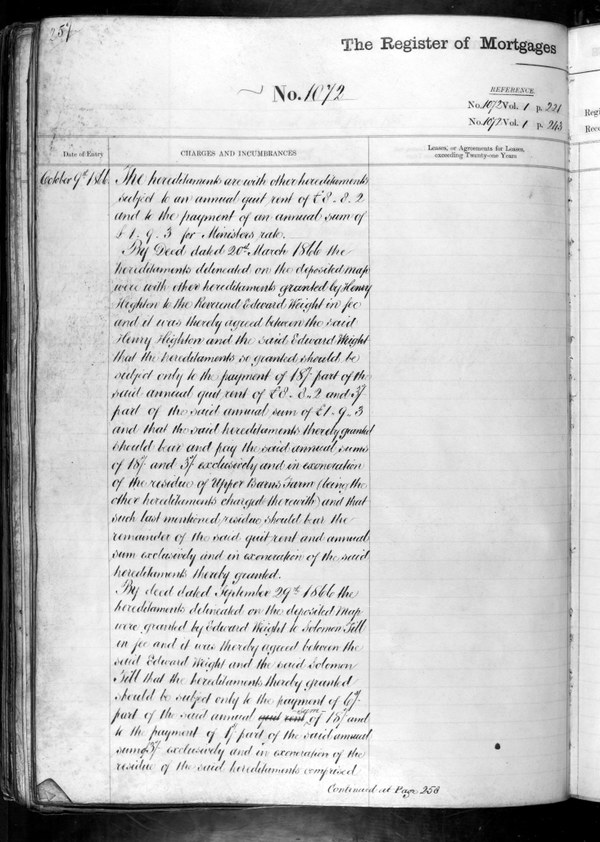 257
The Register of Mortgages
No. 1072
REFERENCE.
No. 1072 Vol. 1 p. 221
No. 1072 Vol. 1 p. 243
Date of Entry
CHARGES AND INCUMBRANCES
Leases, or Agreements for Leases, exceeding Twenty-one Years
October 9th 1866.
The hereditaments are with other hereditaments
subject to an annual quit rent of £8-8-2
and to the payment of an annual sum of
£1-9-3 for Ministers rate.
By Deed dated 20th March 1866 the
hereditaments delineated on the deposited map
were with other hereditaments granted by Henry
Heighton to the Reverend Edward Weight in fee
and it was thereby agreed between the said
Henry Heighton and the said Edward Weight
that the hereditaments so granted should be
subject only to the payment of 18/- part of the
said annual quit rent of £8-8-2 and 3/-
part of the said annual sum of £1-9-3
and that the said hereditaments thereby granted
should bear and pay the said annual sums
of 18/- and 3/- exclusively and in exoneration
of the residue of Upper Barns Farm (being the
other hereditaments charged therewith) and that
such last mentioned residue should bear the
remainder of the said quit rent and annual
sum exclusively and in exoneration of the said
hereditaments thereby granted.
By deed dated September 29th 1866 the
hereditaments delineated on the deposited map
were granted by Edward Weight to Solomon Till
in fee and it was thereby agreed between the
said Edward Weight and the said Solomon
Till that the hereditaments thereby granted
should be subject only to the payment of 6/-
part of the said annual quit rent sum of 18/- and
to the payment of 1/- part of the said annual
sum 3/- exclusively and in exoneration of the
residue of the said hereditaments comprised
Continued at Page 258
Regi
Rece